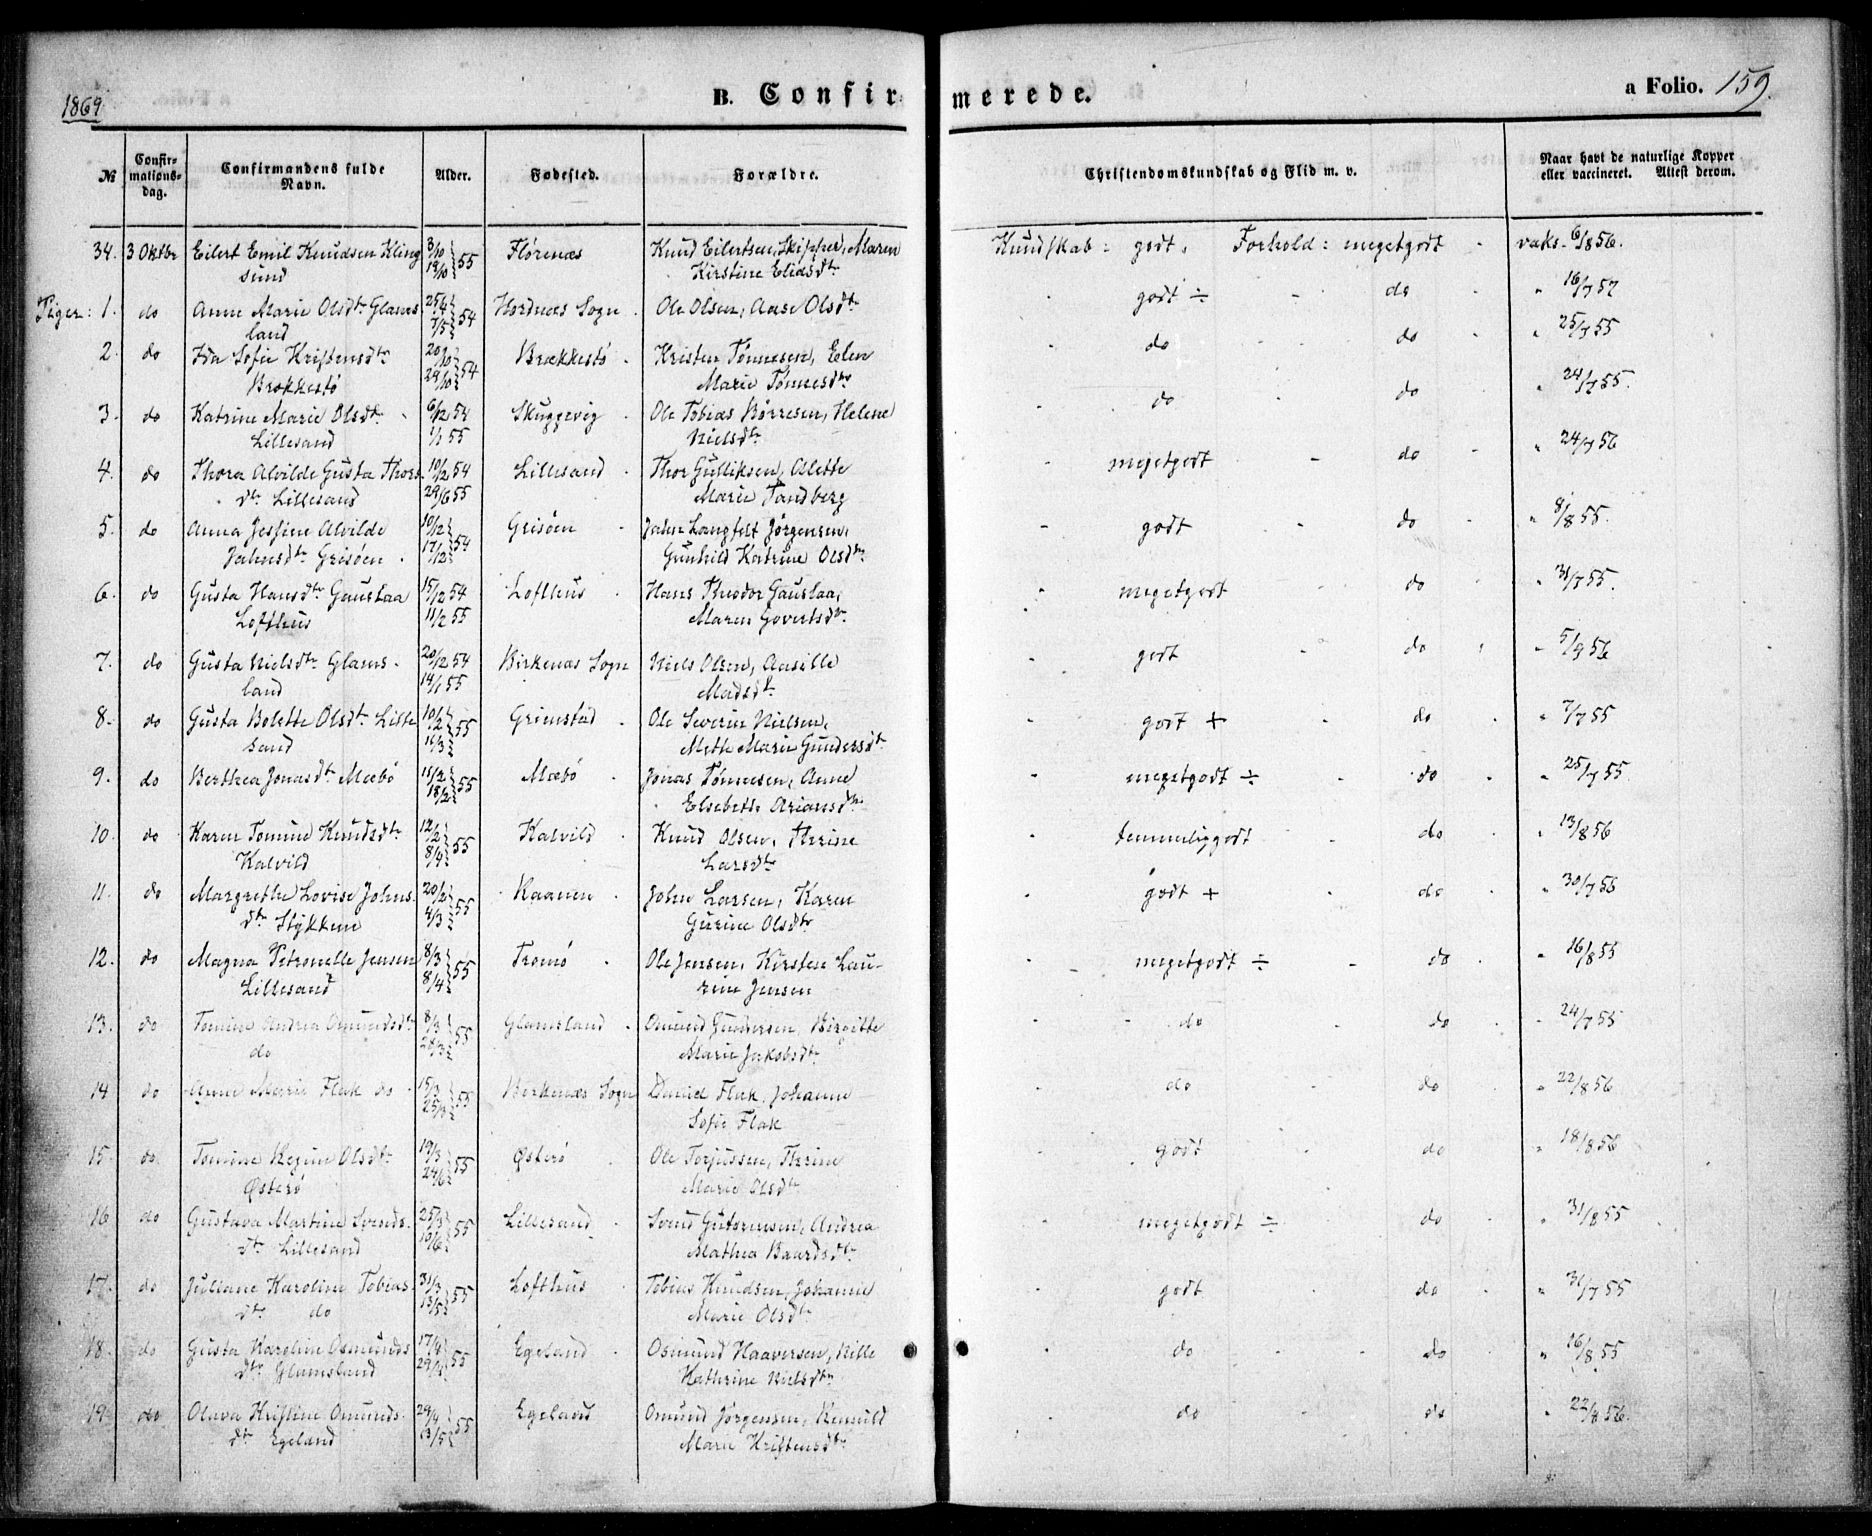 1869.
B. Confirmerede.
a Folio. 159.
№
Confirmationsdag.
Confirmandens fulde Navn.
Alder.
Fødested.
Forældre.
Christendomskundskab og Flid m. v.
Naar havt de naturlige Kopper eller vaccineret. Attest derom.
34. 3 Oktbr Eilert Emil Knudsen Kling 3/10 Florenæs Knud Eilertsen, Skipper, Maren Kundskab: godt. Forhold: megetgodt vaks. 6/8 56.
sund 19/10 55 Kirstine Eliasdtr
Piger: 1. do Anne Marie Olsdtr Glams 25/4 Sogn Ole Olsen, Aase Olsdtr godt ÷ do " 16/7 57
land 7/5 54
2. do Ida Sofie Kristensdtr 20/10 Brækkestø Kristen Tønnesen, Elen do do " 25/7 55
Brækkestø 29/10 54 Marie Tønnesdtr
3. do Katrine Marie Olsdtr 6/12 54 Skuggevig Ole Tobias Børresen, Helene do do " 24/7 55.
Lillesand 1/1 55 Nielsdtr
4. do Thora Alvilde Gusta Thors 10/12 54 Lillesand Thor Gulliksen, Alette megetgodt do " 24/7 56
dtr Lillesand 29/6 55 Marie Tandberg
5. do Anna Jessine Alvilde 10/12 Grisøen Jahn Langfelt Jørgensen, godt do " 8/8 55.
Jahnsdtr Grisøen 17/12 54 Gunhild Katrine Olsdtr
6. do Gusta Hansdtr Gauslaa 15/12 54 Lofthus Hans Theodor Gauslaa, megetgodt do " 31/7 55.
Lofthus 11/2 55 Maren Govertsdtr
7. do Gusta Nielsdtr Glams- 20/12 54 Birkenæs Sogn Niels Olsen, Aasille godt do " 5/9 56
land 14/1 55 Madsdtr
8. do Gusta Bolette Olsdtr Lille 10/2 Grimstad Ole Severin Nielsen, godt + do " 7/7 55
sand 11/3 55 Meth Marie Gundersdtr
9. do Berthea Jonasdtr Mæbø 15/2 Mæbø Jonas Tønnesen, Anne megetgodt ÷ do " 25/7 55
18/2 55 Elsebeth Ariansdtr
10. do Karen Tomine Knudsdtr 12/2 Kalvild Knud Olsen, Therine temmeliggodt do " 13/8 56
Kalvild 8/4 55 Larsdtr
11. do Margrethe Lovise Johns 20/2 Kaanen John Larsen, Karen godt + do " 30/7 56
dtr Stykken 4/3 55 Gurine Olsdtr
12. do Magna Petronelle Jensen 8/3 Tromø Ole Jensen, Kirsten Lau- megetgodt ÷ do " 16/8 55
Lillesand 8/4 55 rine Jensen
13. do Tomine Andrea Omundsdtr 8/3 Glamsland Omund Gundersen, Birgitte do do " 24/7 55
do 28/3 55 Marie Jakobsdtr
14 do Anne Marie Flak do 15/3 Berkenæs Sogn Daniel Flak, Johanne do do " 22/8 56
25/3 55 Sofie Flak
15. do Tomine Regine Olsdtr 19/3 Østerø Ole Terjussen, Therine godt do " 18/8 56
Østerø 24/6 55 Marie Olsdtr
16 do Gustava Martine Svends- 25/3 Lillesand Svend Gutormsen, Andrea megetgodt ÷ do " 31/8 55
dtr Lillesand 10/6 55 Mathea Baardsdtr
17. do Juliane Karoline Tobias- 31/3 Lofthus Tobias Knudsen, Johanne godt do " 31/7 55
dtr do 13/5 55 Marie Olsdtr
18. do Gusta Karoline Osmunds 17/4 Egeland Osmund Haaversen, Nille do do " 16/8 55
dtr Glamsland 29/4 55 Kathrine Nielsdtr
19. do Olava Kristine Omunds- 29/4 Egeland Omund Jørgensen, do do " 22/8 56.
dtr Egeland 13/5 55 Marie Kristensdtr